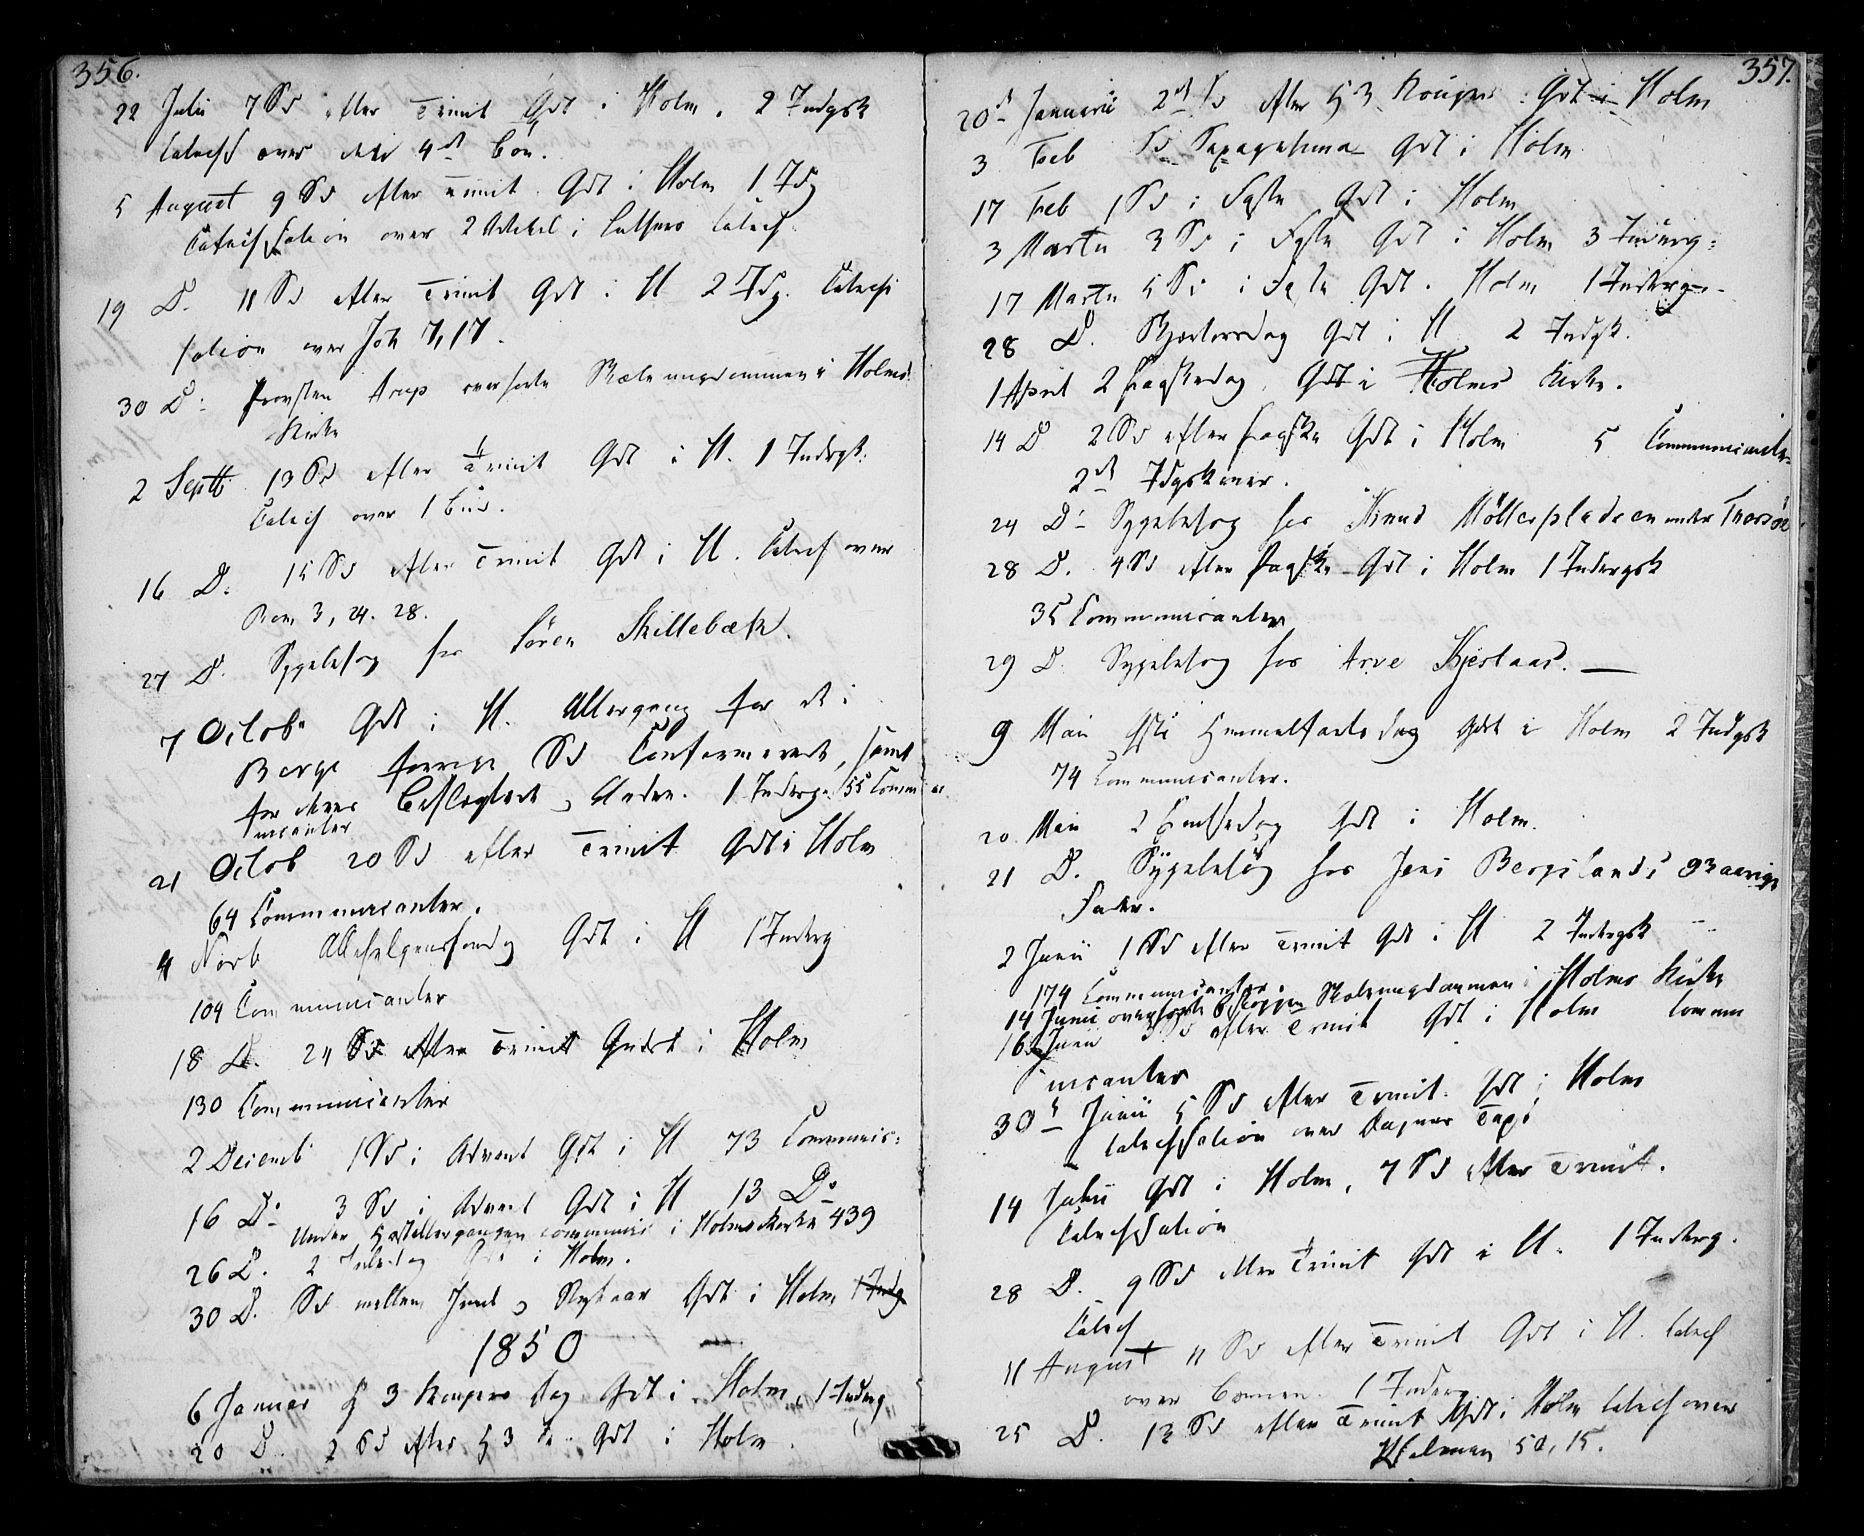 356.
22 Julii 7 Sd efter Trinit Gdt i Holm. 2 Indgsk
Catech over den 4de Bøn.
5 August 9 Sd efter Trinit. Gdt i Holm 1 Idg
Catechisation over 2 Artikel i Luthers Catech.
19 D. 11 Sd efter Trinit Gdt i H 2 Idg. Catechi
sation over Joh 7,17.
30 D: Provsten Arup overhørte Skoleungdommen i Holms
Kirke
2 Septb 13 Sd efter Trinit Gdt i H. 1 Indgsk.
Catech over 1 Bud.
16 D. 15 Sd efter Trinit Gdt i H. Catech over
Rom 3, 24. 28.
27 D. Sygebesøg hos Søren Skillebæk.
7 Octobr Gdt i H. Altergang for de i
Berge forrige Sd Confirmerede, samt
for deres Beslægtede og Andre. 1 Inderg. 55 Commu
nicanter
21 Octob 20 Sd efter Trinit Gdt i Holm
64 Communicanter.
4 Novb Allehelgensfondag Gdt i H 1 Inderg
104 Communicanter
18 D. 24 Sd efter Trinit Gudst i Holm
130 Communicanter
2 Decemb 1 Sd i Advent Gdt i H 73 Communic:
16 D: 3 Sd i Advent Gdt i H 13 Do
Under Høstaltergangen communic i Holms Kirke 439
26 D. 2 Juledag Gdt i Holm.
30 D. Sd mellem Juul og Nytaar Gdt i Holm 1 Indg
1850
6 Januar H 3 Kongers Dag Gdt i Holm, 1 Inderg
20 D. 2 Sd efter H 3 K. Gdt i Holm.
357.
20de Januarii 2den Sd efter H 3 Konger. Gdt i Holm
3 Feb Sd Sexagesima Gdt i Holm
17 Feb 1 Sd i Faste Gdt i Holm
3 Martii 3 Sd i Faste Gdt i Holm 3 Inderg:
17 Martii 5 Sd i Faste Gdt. Holm 1 Inderg
28 D. Skjertorsdag Gdt i H 2 Indgsk.
1 April 2 Paaskedag. Gdt i Holms Kirke.
14 D 2 Sd efter Paaske Gdt i Holm 5 Communicanter
2de Idgskoner.
24 D: Sygebesøg hos Knud Møllerpladsen under
28 D. 4 Sd efter Paaske Gdt i Holm 1 Indergsk
35 Communicanter
29 D. Sygebesøg hos Arve Kjeslaas.
9 Mai Chsti Himmelfartsdag Gdt i Holm 2 Indgsk
74 Communicanter.
20. Mai 2 Pintsedag Gdt i Holm.
21 D. Sygebesøg hos Jens Bergslands 93 aarige
Fader.
2 Junii 1 Sd efter Trinit Gdt i H 2 Indergsk
174 Communicanter.
14 Junii overhørte Biskoppen Skoleungdommen i Holms Kirke
16 Junii 3 Sd efter Trinit Gdt i Holm Commu
nicanter
30te Junii 5 Sd efter Trinit. Gdt i Holm
Catechisation over Dagens Text
14 Julii Gdt i Holm, 7 Sd efter Trinit.
Catechisation
28 D. 9 Sd efter Trinit Gdt i H. 1 Inderg.
Catech
11 August 11 Sd efter Trinit Gdt i H. Catech
over Bønnen. 1 Inderg
25 D. 13 Sd efter Trinit Gdt i Holm Catech over
Psalmen 50, 15.